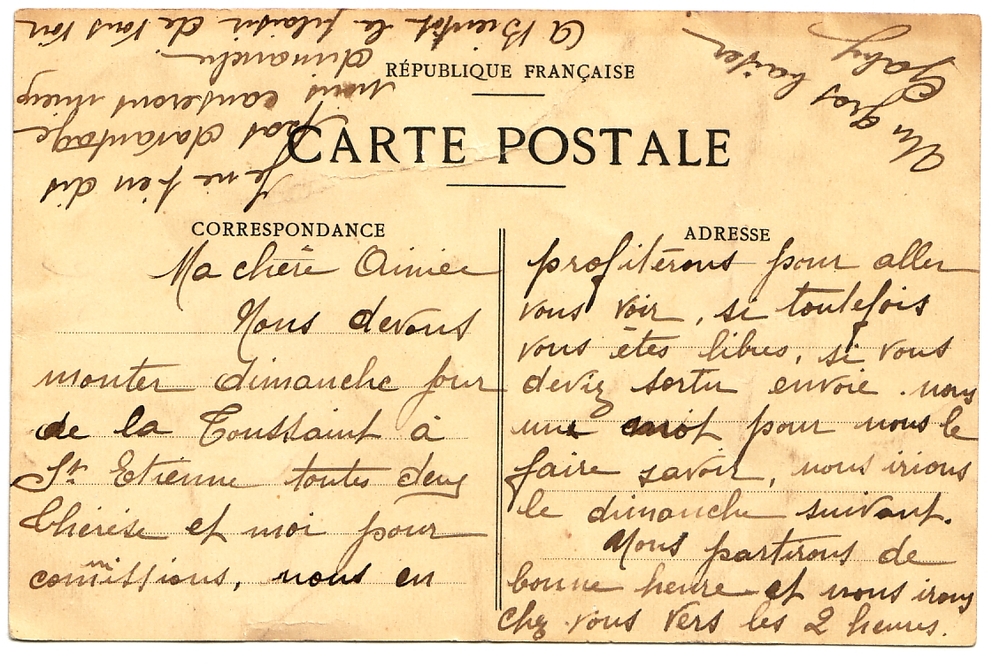 RÉPUBLIQUE FRANÇAISE
CARTE POSTALE
CORRESPONDANCE
Ma chère Aimée
Nous devons
monter dimanche jour
de la Toussaint à
St Etienne toutes deux
Thérèse et moi pour
commissions, nous en
ADRESSE
profiterons pour aller
vous voir, si toutefois
vous êtes libres, si vous
deviez sortir envoie nous
une mot pour nous le
faire savoir, nous irions
le dimanche suivant.
Nous partirons de
bonne heure et nous irons
chez vous vers les 2 heures.
Je ne t'en dis
pas davantage
nous causerons mieux
dimanche.
A Bientôt le plaisir de vous voir
Un Gros baiser
Gaby